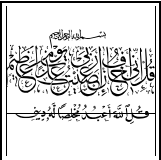 بسم الله الرحمن الرحيم
قل إني أخاف إن عصيت ربي عذاب يوم عظيم
قل الله أعبد مخلصا له ديني